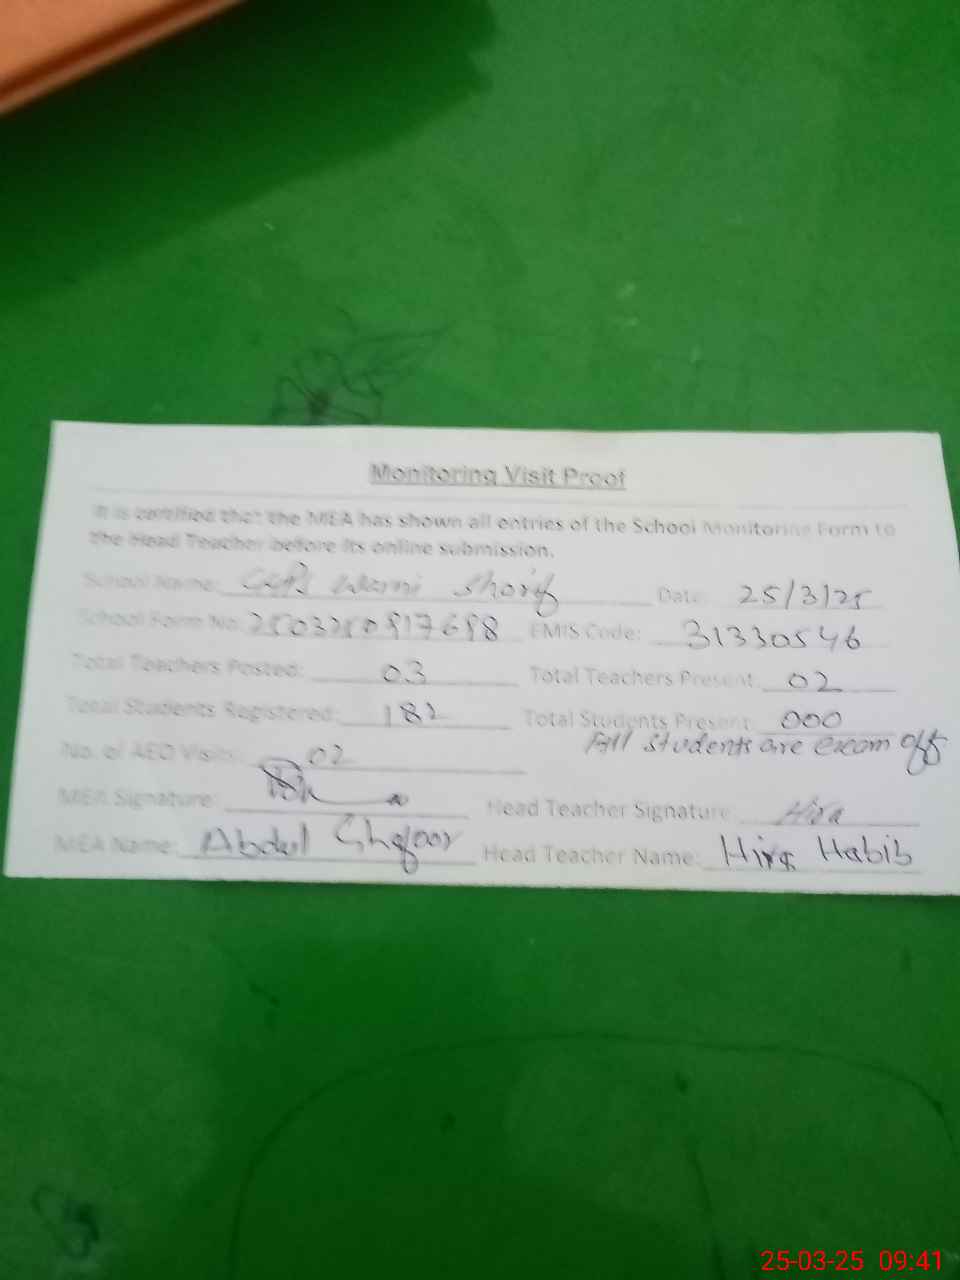 Monitoring Visit Proof
It is certified that the MEA has shown all entries of the School Monitoring Form to
the Head Teacher before its online submission.
School Name: Sharif Date: 25/3/25
School Form No: EMIS Code: 31330546
Total Teachers Posted: 03 Total Teachers Present: 02
Total Students Registered: 182 Total Students Present: 000
All Students are exam off
No. of AEO Visits: 02
MEA Signature: Head Teacher Signature: Hira
MEA Name: Abdul Ghafoor Head Teacher Name: Hira Habib
25-03-25 09:41